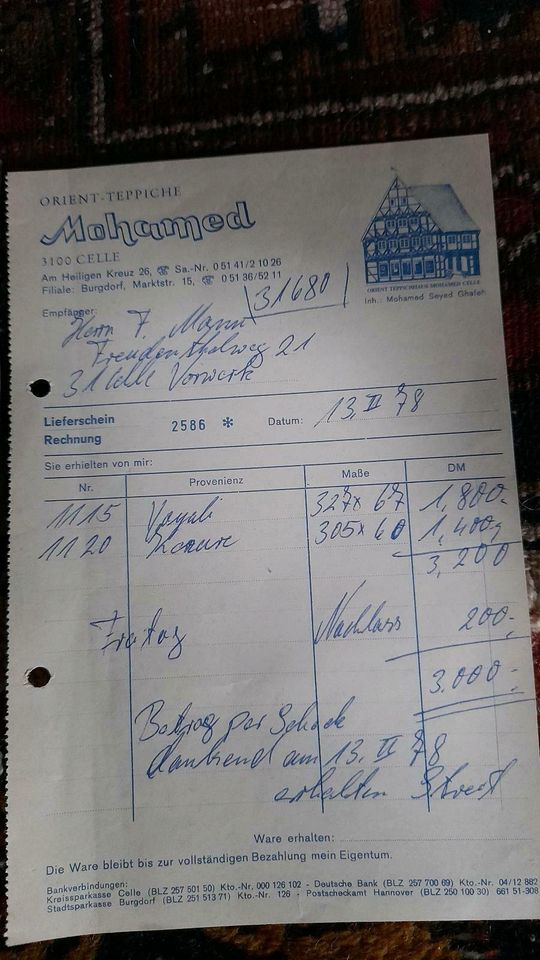 ORIENT-TEPPICHE
Mohamed
3100 CELLE
Am Heiligen Kreuz 26, ☎ Sa.-Nr. 0 51 41/2 10 26
Filiale: Burgdorf, Marktstr. 15, ☎ 0 51 36/52 11
ORIENT TEPPICHHAUS MOHAMED CELLE
Inh.: Mohamed Seyed Ghaleh
31680
Empfänger:
Herrn F. Mann
Freudenthalweg 21
31 Celle Vorwerk
Lieferschein
Rechnung 2586 * Datum: 13. II 78
Sie erhielten von mir:
Nr. Provenienz Maße DM
1115 327 x 67 1,800.-
1120 305 x 60 1,400,
3,200
Freitag Nachlass 200.-
3.000.-
Betrag per Scheck
dankend am 13. II 78
erhalten
Ware erhalten:
Die Ware bleibt bis zur vollständigen Bezahlung mein Eigentum.
Bankverbindungen:
Kreissparkasse Celle (BLZ 257 501 50) Kto.-Nr. 000 126 102 - Deutsche Bank (BLZ 257 700 69) Kto.-Nr. 04/12 882
Stadtsparkasse Burgdorf (BLZ 251 513 71) Kto.-Nr. 126 - Postscheckamt Hannover (BLZ 250 100 30) 661 51-308